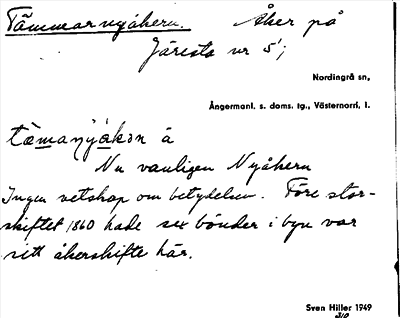 Tåmmarnyåkern. Åker på
Järesta nr 5;
Nordingrå sn,
Ångermanl. s. doms. tg., Västernorrl. l.
tåmanyåkən å
Nu vanligen Nyåkern
Ingen vetskap om betydelsen. Före stor-
skiftet 1860 hade sex bönder i byn var
sitt åkerskifte här.
Sven Hiller 1949